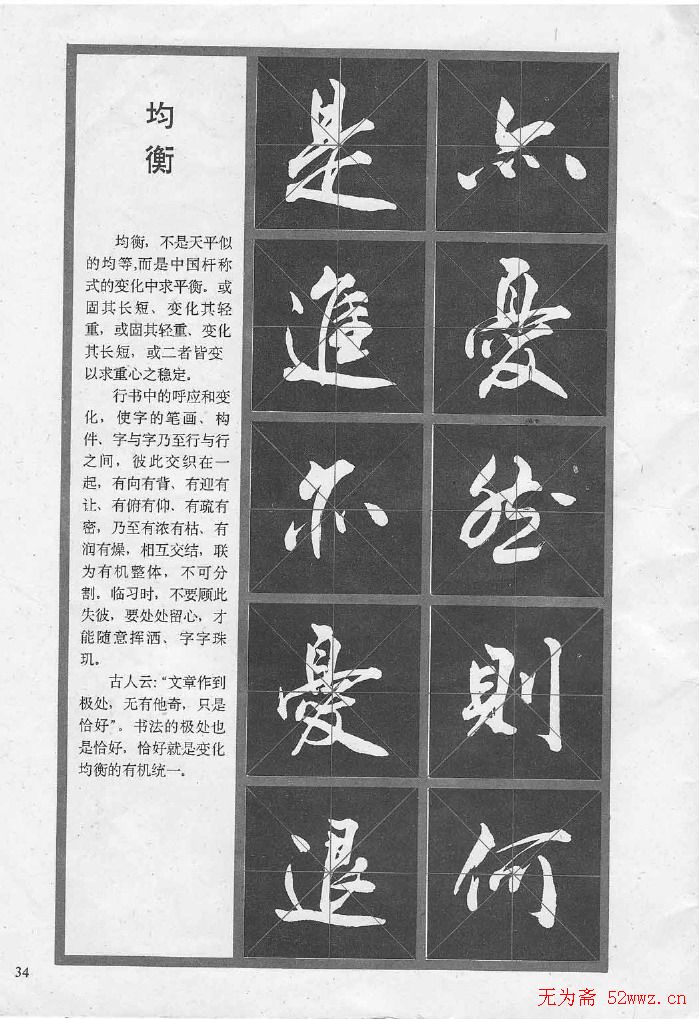 均
衡
均衡，不是天平似
的均等,而是中国杆称
式的变化中求平衡。或
固其长短、变化其轻
重，或固其轻重、变化
其长短，或二者皆变
以求重心之稳定。
行书中的呼应和变
化，使字的笔画、构
件、字与字乃至行与行
之间，彼此交织在一
起，有向有背、有迎有
让、有俯有仰、有疏有
密，乃至有浓有枯、有
润有燥，相互交结，联
为有机整体，不可分
割。临习时，不要顾此
失彼，要处处留心，才
能随意挥洒、字字珠
玑。
古人云:“文章作到
极处，无有他奇，只是
恰好”。书法的极处也
是恰好，恰好就是变化
均衡的有机统一。
是
進
亦
憂
退
亦
憂
然
則
何
34
无为斋 52wwz.cn